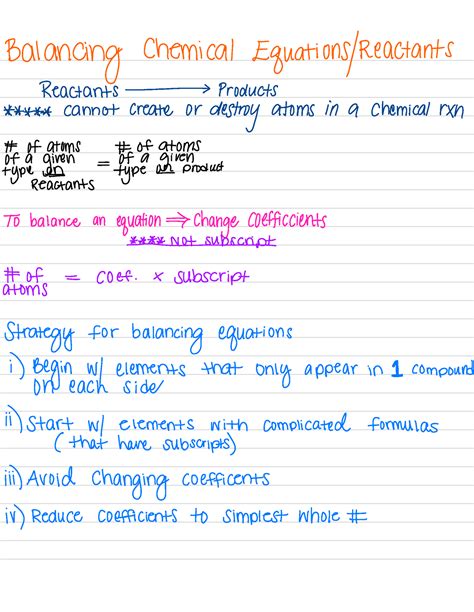 Balancing Chemical Equations/Reactants
Reactants ⟶ Products
***** cannot create or destroy atoms in a chemical rxn
# of atoms of a given type on Reactants = # of atoms of a given type on product
To balance an equation ⟹ Change Coefficcients
**** Not subscript
# of atoms = coef. × subscript
Strategy for balancing equations
i) Begin w/ elements that only appear in 1 compound
on each side
ii) Start w/ elements with complicated formulas
(that have subscripts)
iii) Avoid Changing coefficents
iv) Reduce coefficients to simplest whole #